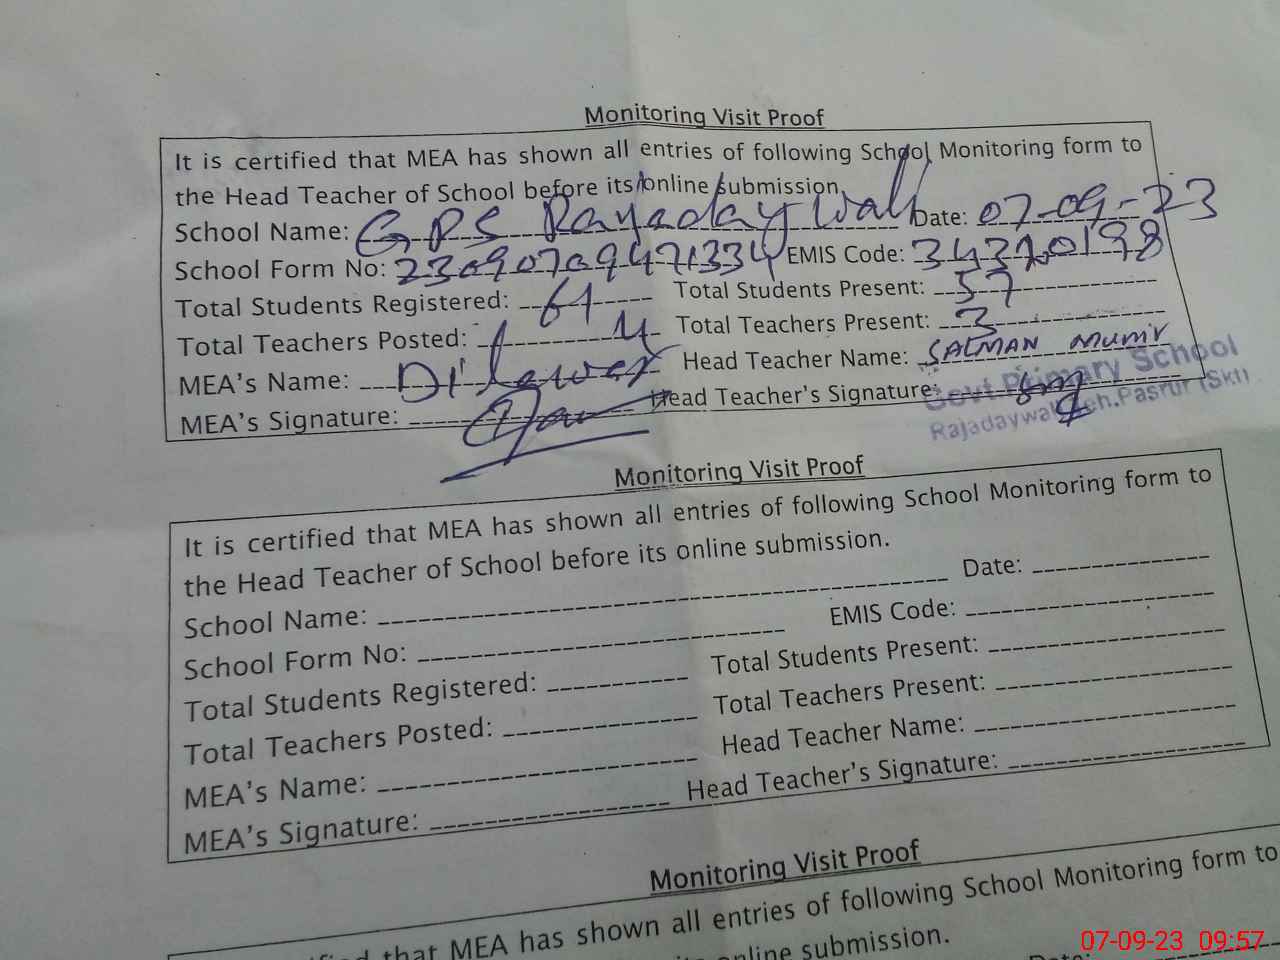 Monitoring Visit Proof
It is certified that MEA has shown all entries of following School Monitoring form to
the Head Teacher of School before its online submission.
School Name: GPS Rajadaywali Date: 07-09-23
School Form No: EMIS Code: 34320198
Total Students Registered: 61 Total Students Present: 57
Total Teachers Posted: 4 Total Teachers Present: 3
MEA's Name: Dilawar Head Teacher Name: SALMAN MUNIR
MEA's Signature: Head Teacher's Signature:
Govt. Primary School
Rajadaywali Teh. Pasrur (Skt)
Monitoring Visit Proof
It is certified that MEA has shown all entries of following School Monitoring form to
the Head Teacher of School before its online submission.
School Name: Date:
School Form No: EMIS Code:
Total Students Registered: Total Students Present:
Total Teachers Posted: Total Teachers Present:
MEA's Name: Head Teacher Name:
MEA's Signature: Head Teacher's Signature:
Monitoring Visit Proof
that MEA has shown all entries of following School Monitoring form to
online submission.
Date:
07-09-23 09:57